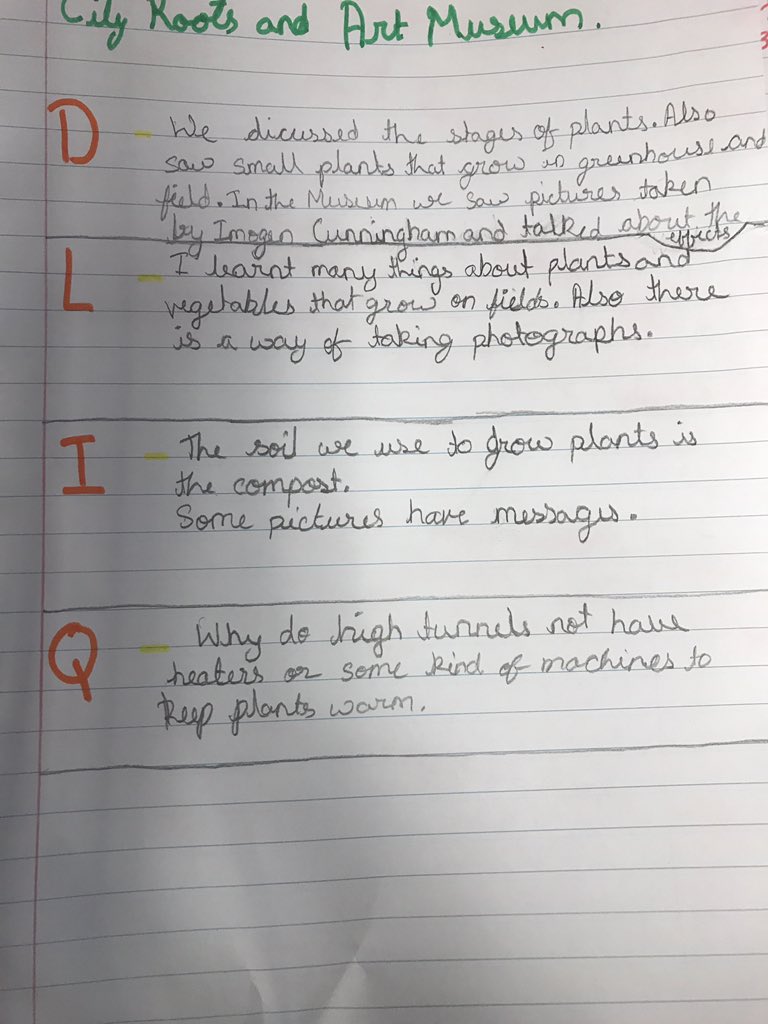 City Roots and Art Museum.
D - We dicussed the stages of plants. Also
saw small plants that grow in greenhouse and
field. In the Museum we saw pictures taken
by Imogen Cunningham and talked about the
effects
L - I learnt many things about plants and
vegetables that grow on fields. Also there
is a way of taking photographs.
I - The soil we use to grow plants is
the compost.
Some pictures have messages.
Q - Why do high tunnels not have
heaters or some kind of machines to
keep plants warm.